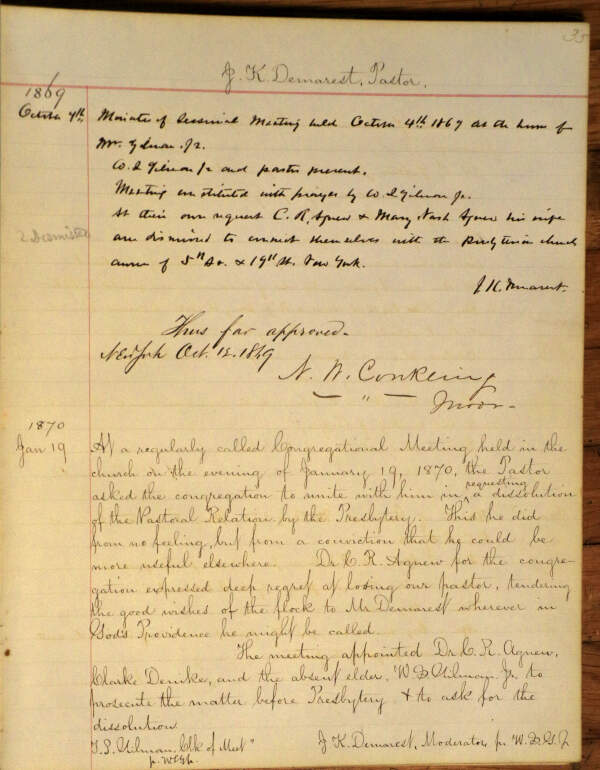 35
J. K. Demarest, Pastor.
1869
October 4th, Minutes of Sessional Meeting held October 4th 1869 at the house of
Mr. Gilman Jr.
W. S Gilman Jr and pastor present.
Meeting constituted with prayer by W. S Gilman Jr.
At their own request C. R. Agnew & Mary Nash Agnew his wife
2 Dismissed
are dismissed to connect themselves with the Presbyterian church
corner of 5th Av. & 19th St. New York.
J. K. Demarest.
Thus far approved.
New York Oct. 12. 1869
N. W. Conkling
— " — Moder-
1870
Jan 19 At a regularly called Congregational Meeting held in the
church on the evening of January 19, 1870, the Pastor
asked the congregation to unite with him in requesting a dissolution
of the Pastoral Relation by the Presbytery. This he did
from no feeling, but from a conviction that he could be
more useful elsewhere. Dr. C. R. Agnew for the congre-
gation expressed deep regret at losing our pastor, tendering
the good wishes of the flock to Mr Demarest wherever in
God's Providence he might be called.
The meeting appointed Dr. C. R. Agnew,
Clarke Demke, and the absent elder, W. S. Gilman, Jr. to
prosecute the matter before Presbytery & to ask for the
dissolution.
T. S. Gilman, Clk of Meet" J K. Demarest, Moderator, pr W. S. G. Jr